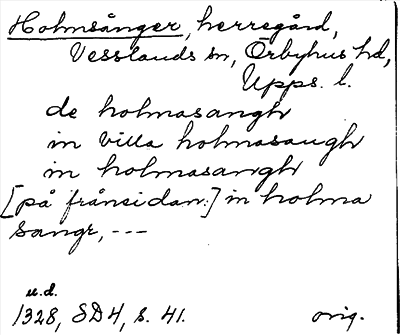 Holmsånger, herregård,
Vesslands sn, Örbyhus hd,
Upps. l.
de holmasangh
in villa holmasaugh
in holmasangh
[på frånsidan:] in holma
sangr, ---
u.d.
1328, SD4, s. 41. orig.